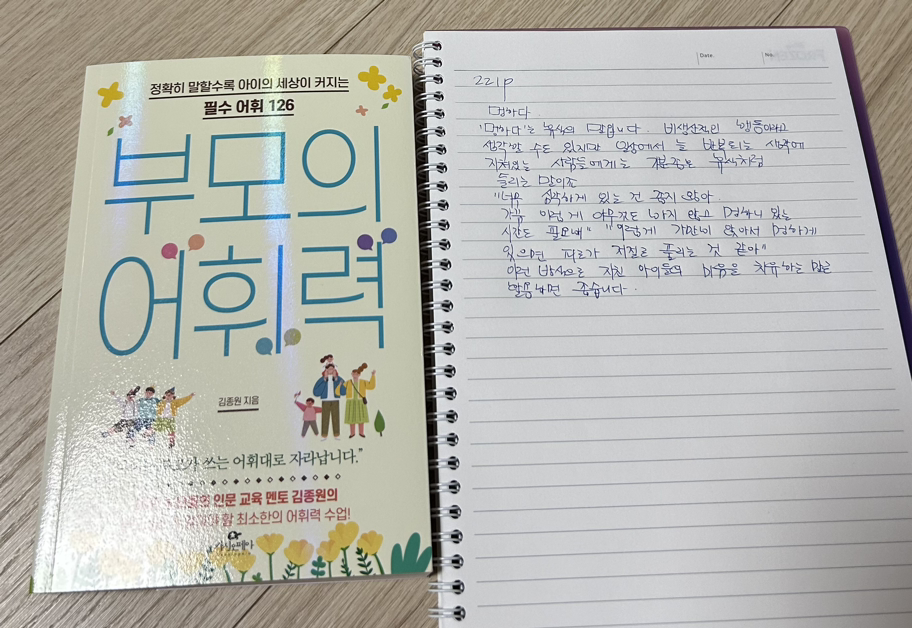 정확히 말할수록 아이의 세상이 커지는
필수 어휘 126
부모의
어휘력
김종원 지음
쓰는 어휘대로 자라납니다."
인문 교육 멘토 김종원의
할 최소한의 어휘력 수업!
Date.
No.
221p
멍하다
'멍하다'는 녹색의 말입니다. 비생산적인 행동이라고
생각할 수도 있지만 일상에서 늘 반복되는 생각에
지쳐있는 사람들에게는 기분좋은 녹색처럼
들리는 말이죠
"너무 심각하게 있는 건 좋지 않아.
가끔 이렇게 아무것도 하지 않고 멍하니 있는
시간도 필요해" "이렇게 가만히 앉아서 멍하게
있으면 피로가 저절로 풀리는 것 같아"
이런 방식으로 지친 아이들의 마음을 치유하는 말로
말씀하면 좋습니다.